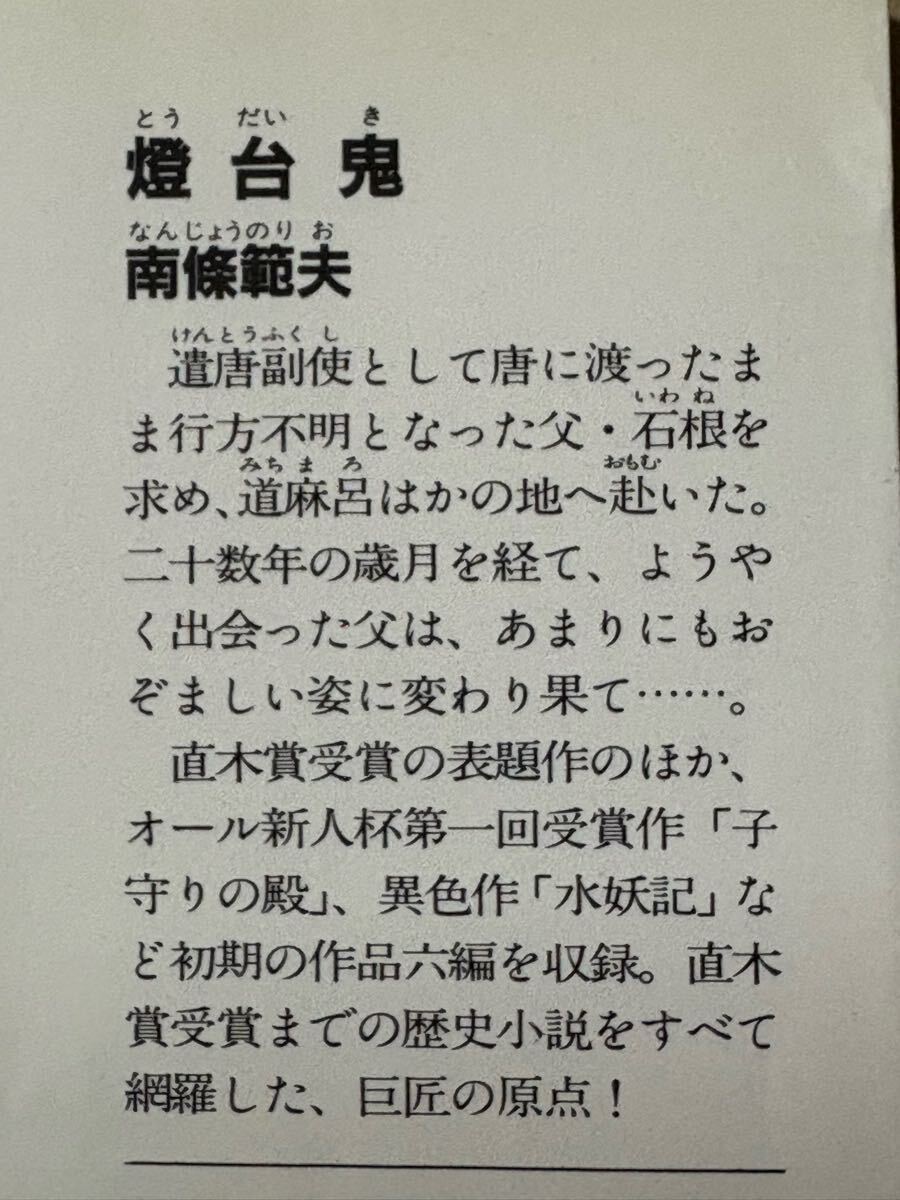 とう だい き
燈台鬼
なんじょうのり お
南條範夫
けんとうふく し
遣唐副使として唐に渡ったま
いわ ね
ま行方不明となった父・石根を
みち ま ろ おもむ
求め、道麻呂はかの地へ赴いた。
二十数年の歳月を経て、ようや
く出会った父は、あまりにもお
ぞましい姿に変わり果て……。
直木賞受賞の表題作のほか、
オール新人杯第一回受賞作「子
守りの殿」、異色作「水妖記」な
ど初期の作品六編を収録。直木
賞受賞までの歴史小説をすべて
網羅した、巨匠の原点！